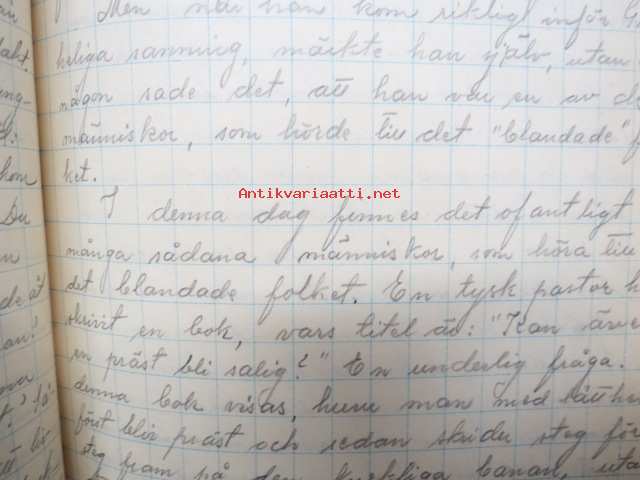 Men när han kom riktigt inför
heliga sanning, märkte han själv, utan
någon sade det, att han var en av d
människor, som hörde till det "blandade" f
ket.
Antikvariaatti.net
I denna dag finnes det ofantligt
många sådana människor, som höra till
det blandade folket. En tysk pastor h
skrivit en bok, vars titel är: "Kan även
en präst bli salig?" En underlig fråga.
denna bok visas, huru man med lätthe
först blir präst och sedan skrider steg för
steg fram på den kyrkliga banan, utan